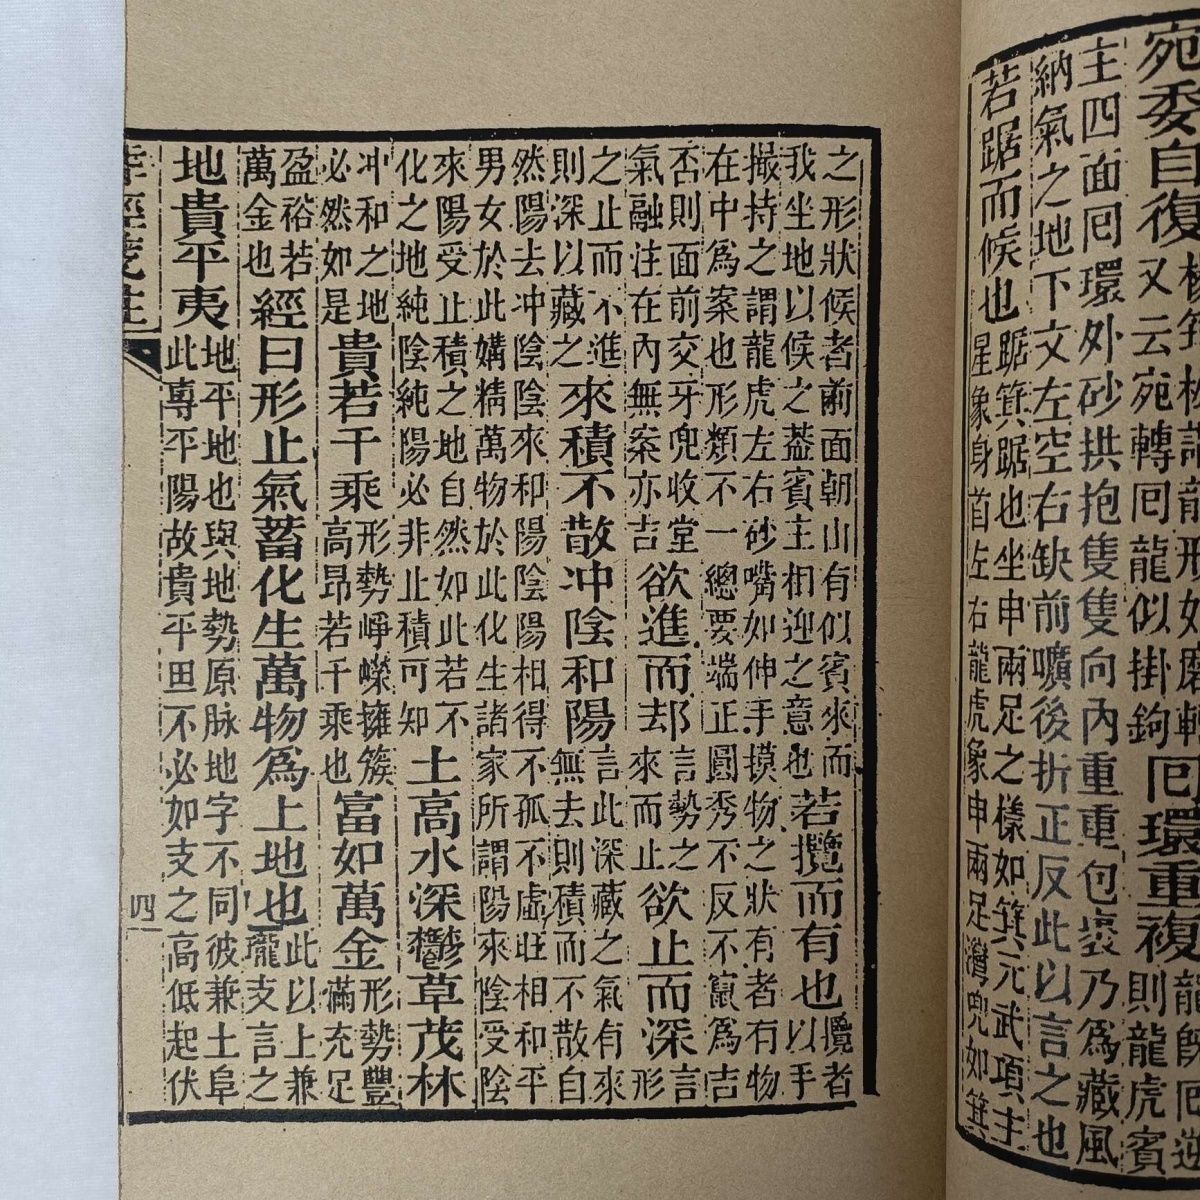 宛委自復楊筠松謂龍形如磨轉又云宛轉囘龍似掛鉤囘環重複龍既囘迎則龍虎賓
主四面囘環外砂拱抱隻隻向內重重包裹乃為藏風納氣之地下文左空右缺前曠後折正反此以言之也
若踞而候也踞箕踞也坐申兩足之樣如箕元武項主星象身首左右龍虎象申兩足灣兜如箕
之形狀候者前面朝山有似賓來而我坐地以候之葢賓主相迎之意也若攬而有也攬者以手
撮持之謂龍虎左右砂嘴如伸手摸物之狀有者有物在中為案也形類不一總要端正圓秀不反不竄為吉
否則面前交牙兜收堂氣融注在內無案亦吉欲進而却言勢之來而止欲止而深言形
之止而不進則深以藏之來積不散冲陰和陽言此深藏之氣有來無去則積而不散自
然陽去冲陰陰來和陽陰陽相得不孤不虛旺相和平男女於此媾精萬物於此化生諸家所謂陽來陰受陰
來陽受止積之地自然如此若不化之地純陰純陽必非止積可知土高水深鬱草茂林
冲和之地必然如是貴若千乘形勢崢嶸擁簇高昂若千乘也富如萬金形勢豐滿充足
盈裕若萬金也經曰形止氣蓄化生萬物為上地也此以上兼壠支言之
地貴平夷地平地也與地勢原脉地字不同彼兼土阜此專平陽故貴平田不必如支之高低起伏
四